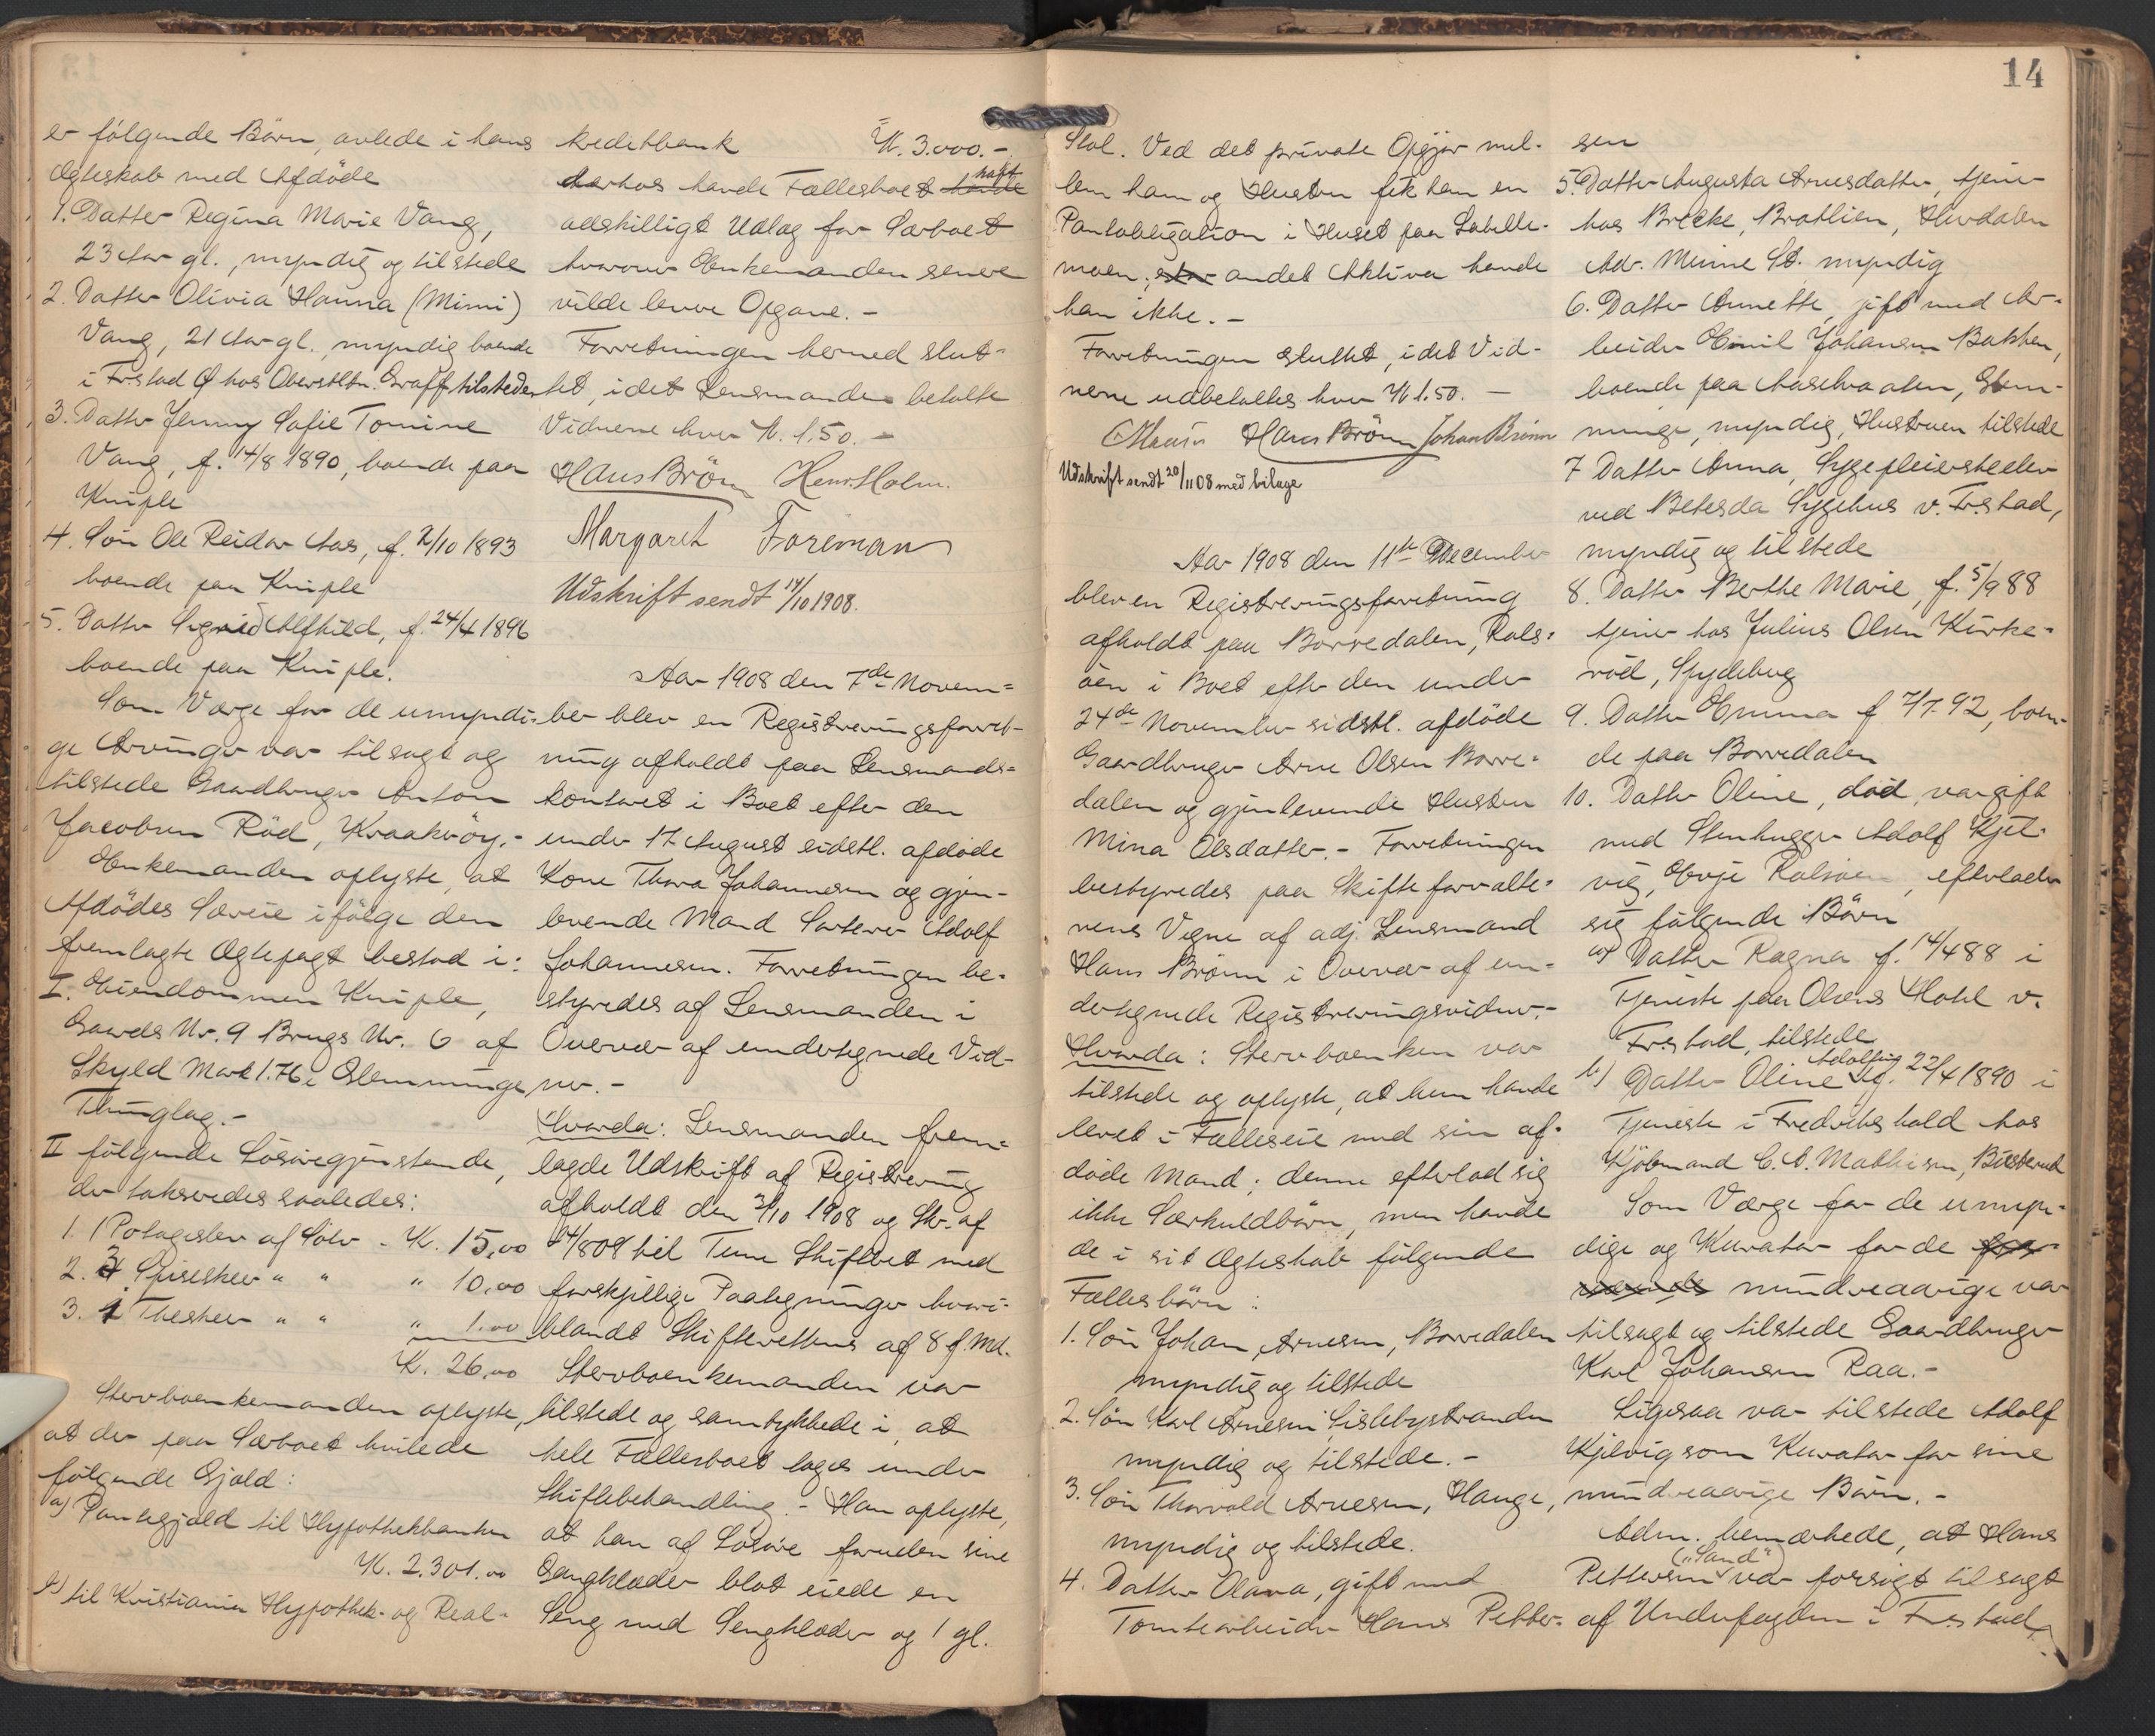 14
er følgende Børn, avlede i hans
Ægteskab med Afdöde
1. Datter Regina Marie Vang,
23 Aar gl., myndig og tilstede
2. Datter Olivia Hanna (Mimi)
Vang, 21 Aar gl., myndig boende
i Frstad & hos Oberstltn. Graff tilstede
3. Datter Jenny Sofie Tomine
Vang, f. 14/8 1890, boende paa
Kniple
4. Sön Ole Reidar Aas, f. 2/10 1893
boende paa Kniple
5. Datter Sigrid Alfhild, f. 24/4 1896
boende paa Kniple.
Som Værge for de umyndi-
ge Arvinger var tilsagt og
tilstede Gaardbruger Anton
Jacobsen Röd, Kraakeröy.-
Enkemanden oplyste, at
Afdödes Særeie ifölge den
fremlagte Ægtepagt bestod i:
I. Eiendommen Kniple,
Gaards Nr. 9 Brugs Nr. 6 af
Skyld Mark 1.76 i Glemminge
Thinglag.-
II følgende Lösöregjenstande,
der taksredes saaledes:
1. 1 Potageslev af Sölv - Kr. 15,00
2. 3 Spiseskeer " " " 10,00
3. 1 Theskeer " " " 1.00
Kr. 26,00
Stervboenkemanden oplyste,
at der paa Særboet hvilede
følgende Gjæld:
a) Pantegjæld til Hypothekbanken
Kr. 2.301.00
b) til Kristiania Hypothek- og Real-
kreditbank Kr. 3.000.-
derhos havde Fællesboet havde haft
adskilligt Udlæg for Særboet
hvorover Enkemanden senere
vilde levere Opgave.-
Forretningen hermed slut-
tet, idet Lensmanden betalte
Vidnerne hver Kr. 1.50.-
Hans Brönn Henr. Holm.
Margaret Foreman
Udskrift sendt 14/10 1908.
Aar 1908 den 7de Novem-
ber blev en Registreringsforret-
ning afholdt paa Lensmands-
kontoret i Boet efter den
under 17 August sidstl. afdöde
Kone Thora Johannesen og gjen-
levende Mand Sorterer Adolf
Johannesen. Forretningen be-
styredes af Lensmanden i
Overvær af undertegnede Vid-
ner.-
Hvorda: Lensmanden frem-
lagde Udskrift af Registrering
afholdt den 3/10 1908 og Skr. af
24/8 08 til Tune Skifteret med
forskjellige Paategninger hvori-
blandt Skifterettens af 8 f. Md.
Stervboenkemanden var
tilstede og samtykkede i, at
hele Fællesboet toges under
Skiftebehandling.- Han oplyste,
at han af Lösöre foruden sine
Gangklæder blot eiede en
Seng med Sengklæder og 1 gl.
Stol. Ved det private Opgjör mel-
lem ham og Hustru fik han en
Pantobligation i Huset paa Labelle-
moen; andet Aktiva havde
han ikke.-
Forretningen sluttet, idet Vid-
nerne udbetaltes hver Kr 1.50.-
Hans Brönn Johan Brönn
Udskrift sendt 20/11 08 med bilage
Aar 1908 den 11te December
blev en Registreringsforretning
afholdt paa Borredalen, Rols-
öen i Boet efter den under
24de November sidstl. afdöde
Gaardbruger Arne Olsen Borre-
dalen og gjenlevende Hustru
Mina Olsdatter.- Forretningen
bestyredes paa Skifteforvalte-
rens Vegne af adj. Lensmand
Hans Brönn i Overvær af un-
dertegnede Registreringsvidner.-
Hvorda: Stervboenken var
tilstede og oplyste, at hun havde
levet i Fælleseie med sin af-
döde Mand; denne efterlod sig
ikke Særkuldbörn, men havde
de i sit Ægteskab følgende
Fællesbörn:
1. Sön Johan Arnesen, Borredalen
myndig og tilstede
2. Sön Karl Arnesen Lislebystranden
myndig og tilstede.-
3. Sön Thorvald Arnesen, Hauge,
myndig og tilstede.
4. Datter Olava, gift med
Tomtearbeider Hans Petter-
sen
5. Datter Augusta Arnesdatter, tjener
hos Brecke, Bratlien, Hurdalen
Adr. Minne St. myndig
6. Datter Annette, gift med Ar-
beider Emil Johansen Bakken,
boende paa Aaselvaaten, Glem-
minge, myndig, Hustruen tilstede
7 Datter Anna, Sygepleierskeelev
ved Betesda Sygehus v. Frstad,
myndig og tilstede
8. Datter Berthe Marie, f. 5/9 88
tjener hos Julius Olsen Kirke-
röd, Spydeberg
9. Datter Emma f 7/7 92, boen-
de paa Borredalen
10. Datter Oline, död, var gift
med Stenhugger Adolf Kjel-
vig, Evje Rolsöen, efterlader
sig følgende Börn
a) Datter Ragna f. 14/4 88 i
Tjeneste paa Olsens Hotel v.
Frstad, tilstede
b) Datter Oline Adolfine f. 22/4 1890 i
Tjeneste i Fredrikshald hos
Kjöbmand C. A. Mathisen, Büsterud
Som Værge for de umyn-
dige og Kurator for de
mindreaarige var
tilsagt og tilstede Gaardbruger
Karl Johansen Raa.-
Ligesaa var tilstede Adolf
Kjelvig som Kurator for sine
mindreaarige Börn.-
Adm. bemærkede, at Hans
Pettersen ("Sand") var forsögt tilsagt
af Underfogden i Frstad